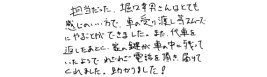 担当だった、堀口幸男さんはとても
感じのいい方で、車の受け渡し等スムーズ
にやることができました。また、代車を
返したあとに、家の鍵が車の中に残って
いたようで、わざわざ電話を頂き届けて
くれました。助かりました!